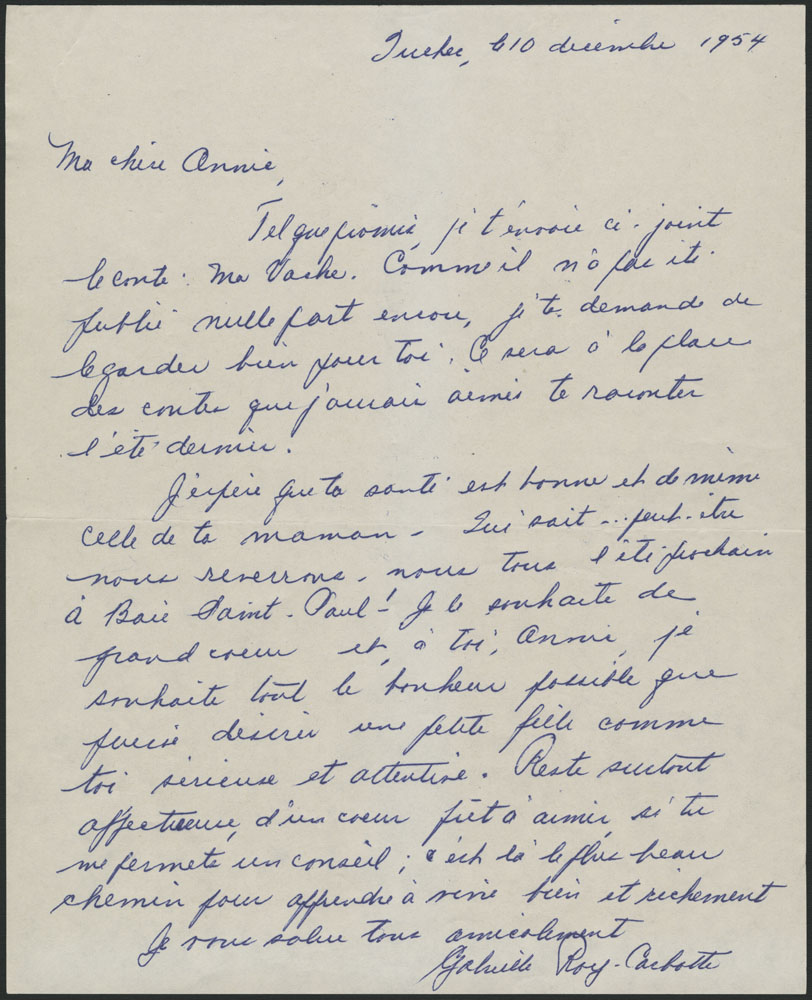 Québec, le 10 décembre 1954
Ma chère Annie,
Tel que promis, je t'envoie ci-joint
le conte: Ma Vache. Comme il n'a pas été
publié nulle part encore, je te demande de
le garder bien pour toi. Ce sera à la place
des contes que j'aurais aimés te raconter
l'été dernier.
J'espère que ta santé est bonne et de même
celle de ta maman - Qui sait... peut-être
nous reverrons-nous tous l'été prochain
à Baie Saint-Paul! Je le souhaite de
grand coeur et, à toi, Annie, je
souhaite tout le bonheur possible que
puisse désirer une petite fille comme
toi sérieuse et attentive. Reste surtout
affectueuse, d'un coeur prêt à aimer, si tu
me permets un conseil; c'est là le plus beau
chemin pour apprendre à vivre bien et richement
Je vous salue tous amicalement
Gabrielle Roy-Carbotte